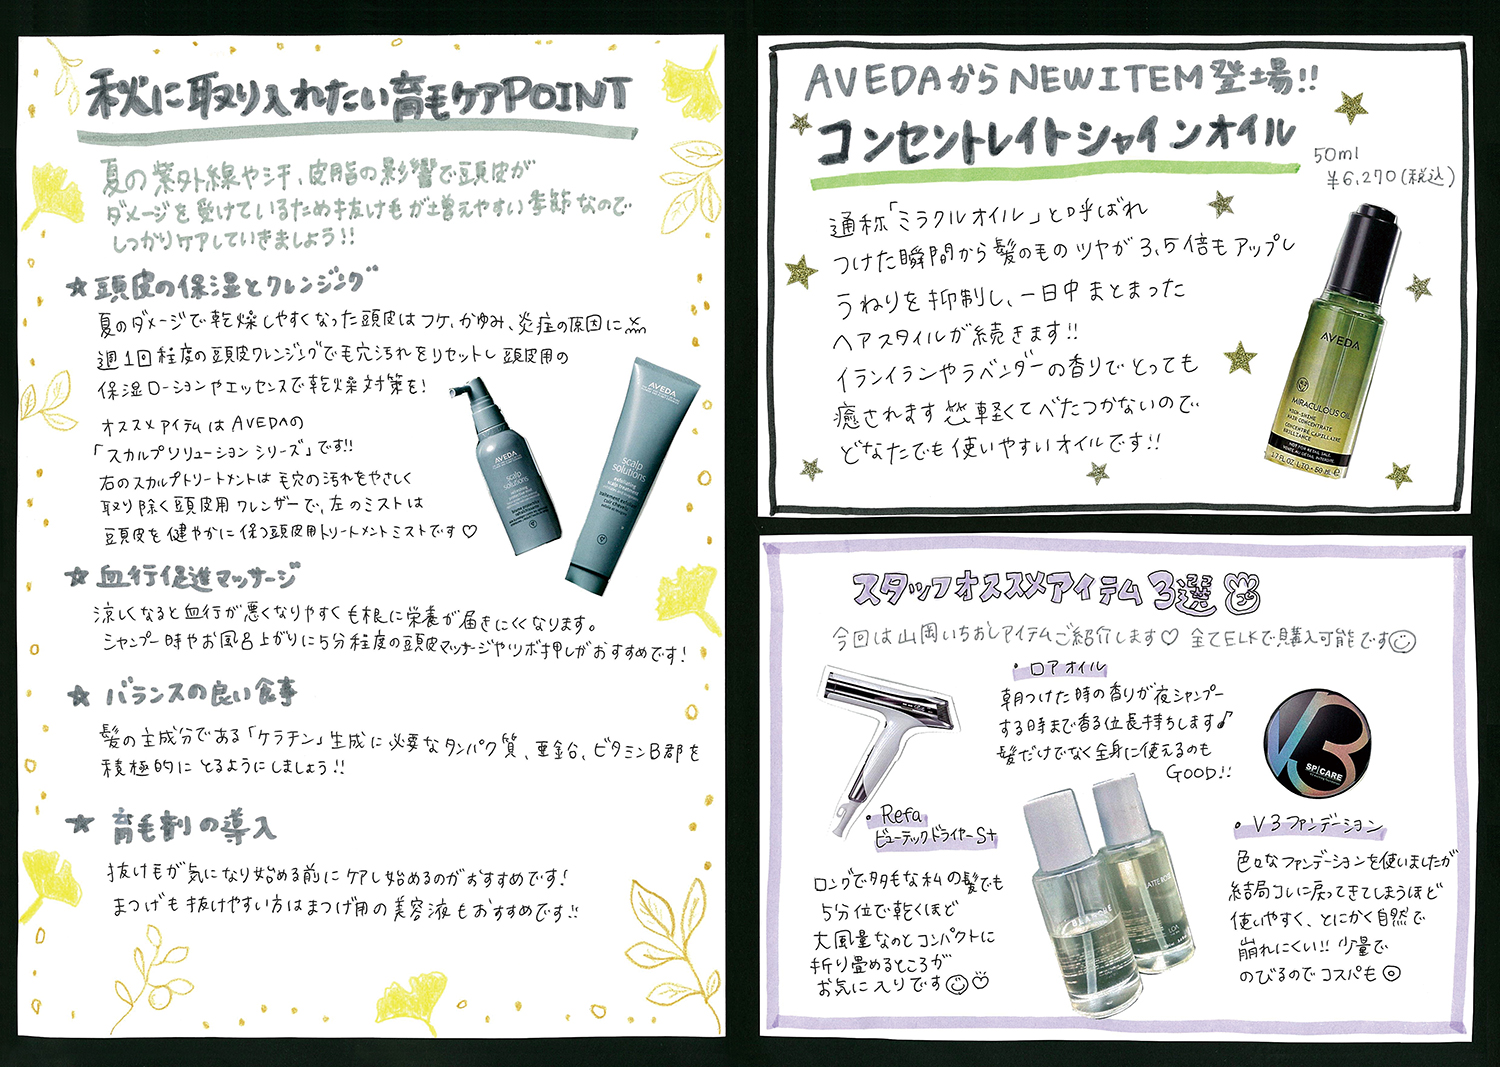 秋に取り入れたい育毛ケアPOINT
夏の紫外線や汗、皮脂の影響で頭皮が
ダメージを受けているため抜け毛が増えやすい季節なので
しっかりケアしていきましょう!!
★頭皮の保湿とクレンジング
夏のダメージで乾燥しやすくなった頭皮はフケ、かゆみ、炎症の原因に
週1回程度の頭皮クレンジングで毛穴汚れをリセットし頭皮用の
保湿ローションやエッセンスで乾燥対策を!
オススメアイテムはAVEDAの
「スカルプソリューションシリーズ」です!!
右のスカルプトリートメントは毛穴の汚れをやさしく
取り除く頭皮用クレンザーで、左のミストは
頭皮を健やかに保つ頭皮用トリートメントミストです♡
AVEDA
scalp
solutions
AVEDA
scalp
solutions
exfoliating
scalp treatment
★血行促進マッサージ
涼しくなると血行が悪くなりやすく毛根に栄養が届きにくくなります。
シャンプー時やお風呂上がりに5分程度の頭皮マッサージやツボ押しがおすすめです!
★バランスの良い食事
髪の主成分である「ケラチン」生成に必要なタンパク質、亜鉛、ビタミンB郡を
積極的にとるようにしましょう!!
★育毛剤の導入
抜け毛が気になり始める前にケアし始めるのがおすすめです!
まつげも抜けやすい方はまつげ用の美容液もおすすめです!!
AVEDAからNEW ITEM登場!!
コンセントレイトシャインオイル
50ml
¥6,270(税込)
通称「ミラクルオイル」と呼ばれ
つけた瞬間から髪のものツヤが3.5倍もアップし
うねりを抑制し、一日中まとまった
ヘアスタイルが続きます!!
イランイランやラベンダーの香りでとっても
癒されます 軽くてべたつかないので
どなたでも使いやすいオイルです!!
AVEDA
MIRACULOUS OIL
HIGH-SHINE
HAIR CONCENTRATE
CONCENTRÉ CAPILLAIRE
BRILLIANCE
NOT FOR RETAIL SALE
1.7 FL OZ LIQ - 50 ml e
スタッフオススメアイテム3選
今回は山岡いちおしアイテムご紹介します♡ 全てELKで購入可能です
・ロアオイル
朝つけた時の香りが夜シャンプー
する時まで香る位長持ちします♪
髪だけでなく全身に使えるのも
GOOD!!
・Refa
ビューテックドライヤーS+
ロングで多毛な私の髪でも
5分位で乾くほど
大風量なのとコンパクトに
折り畳めるところが
お気に入りです
V3
SPICARE
・V3ファンデーション
色々なファンデーションを使いましたが
結局コレに戻ってきてしまうほど
使いやすく、とにかく自然で
崩れにくい!! 少量で
のびるのでコスパも◎